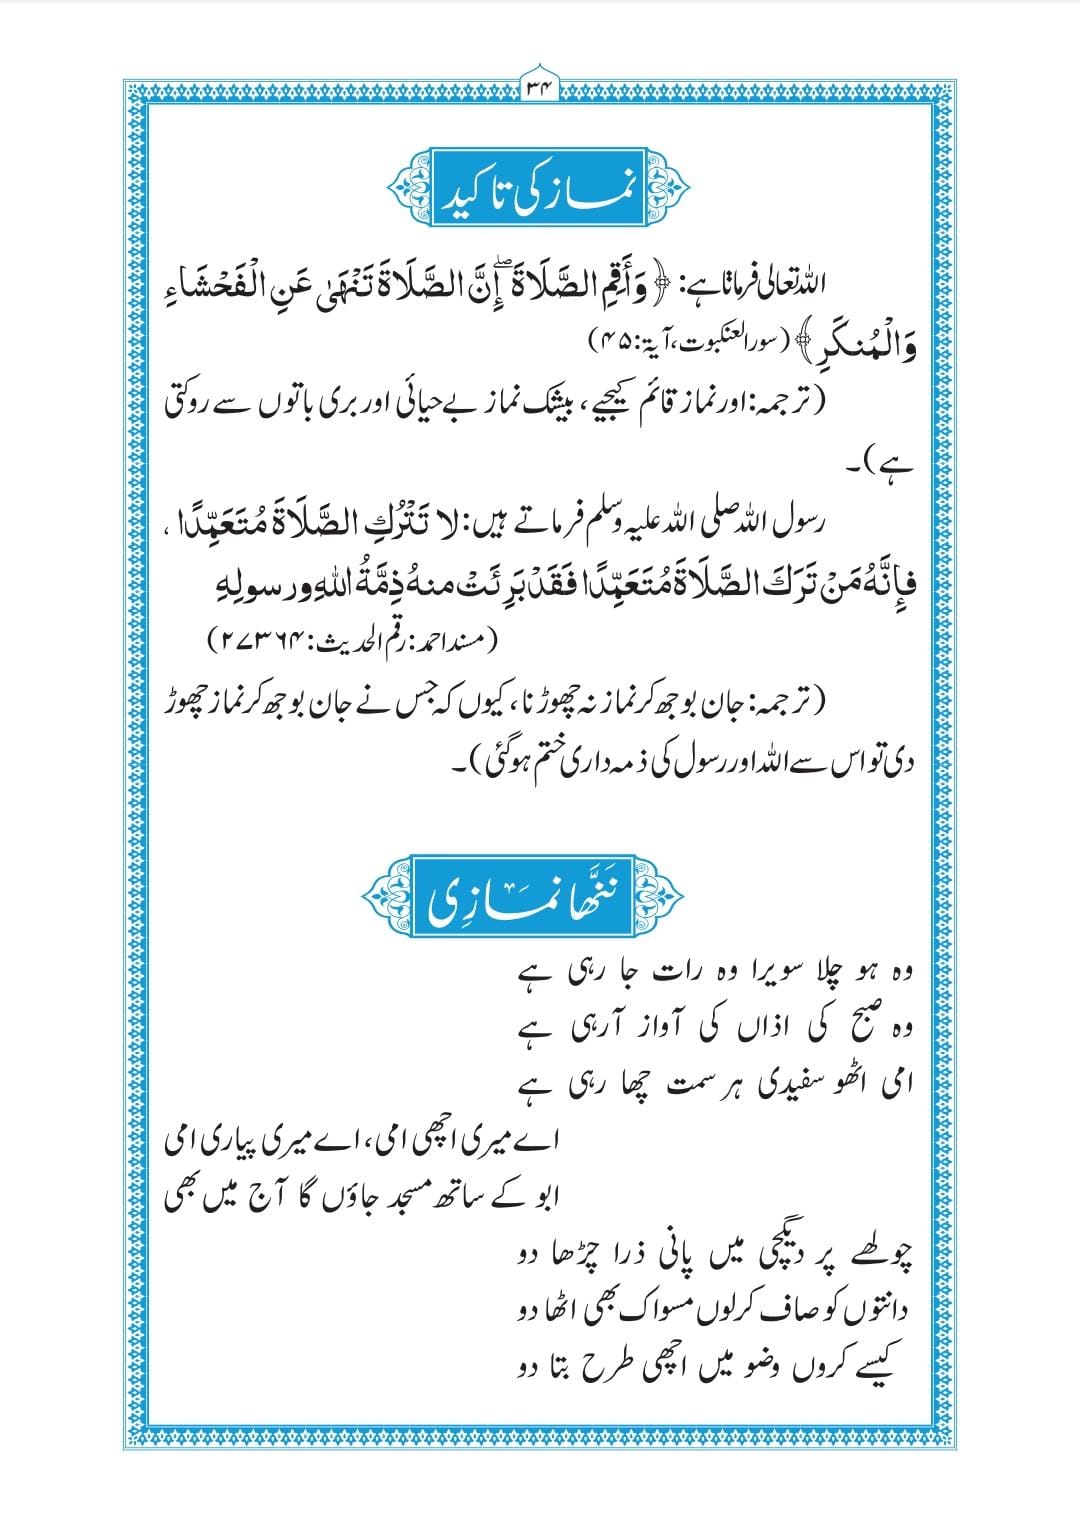 ۳۴
نماز کی تاکید
اللہ تعالی فرماتا ہے: ﴿وَأَقِمِ الصَّلَاةَ ۖ إِنَّ الصَّلَاةَ تَنْهَىٰ عَنِ الْفَحْشَاءِ
وَالْمُنكَرِ﴾ (سورالعنکبوت، آیۃ: ۴۵)
(ترجمہ: اور نماز قائم کیجیے، بیشک نماز بے حیائی اور بری باتوں سے روکتی
ہے)۔
رسول اللہ صلی اللہ علیہ وسلم فرماتے ہیں: لا تَتْرُكِ الصَّلَاةَ مُتَعَمِّدًا ،
فإِنَّهُ مَنْ تَرَكَ الصَّلَاةَ مُتَعَمِّدًا فَقَدْ بَرِئَتْ منهُ ذِمَّةُ اللهِ ورسولِهِ
(مسند احمد: رقم الحدیث: ۲۷۳۶۴)
(ترجمہ: جان بوجھ کر نماز نہ چھوڑنا، کیوں کہ جس نے جان بوجھ کر نماز چھوڑ
دی تو اس سے اللہ اور رسول کی ذمہ داری ختم ہوگئی)۔
نَنَّھا نمَازِی
وہ ہو چلا سویرا وہ رات جا رہی ہے
وہ صبح کی اذاں کی آواز آرہی ہے
امی اٹھو سفیدی ہر سمت چھا رہی ہے
اے میری اچھی امی، اے میری پیاری امی
ابو کے ساتھ مسجد جاؤں گا آج میں بھی
چولھے پر دیگچی میں پانی ذرا چڑھا دو
دانتوں کو صاف کرلوں مسواک بھی اٹھا دو
کیسے کروں وضو میں اچھی طرح بتا دو